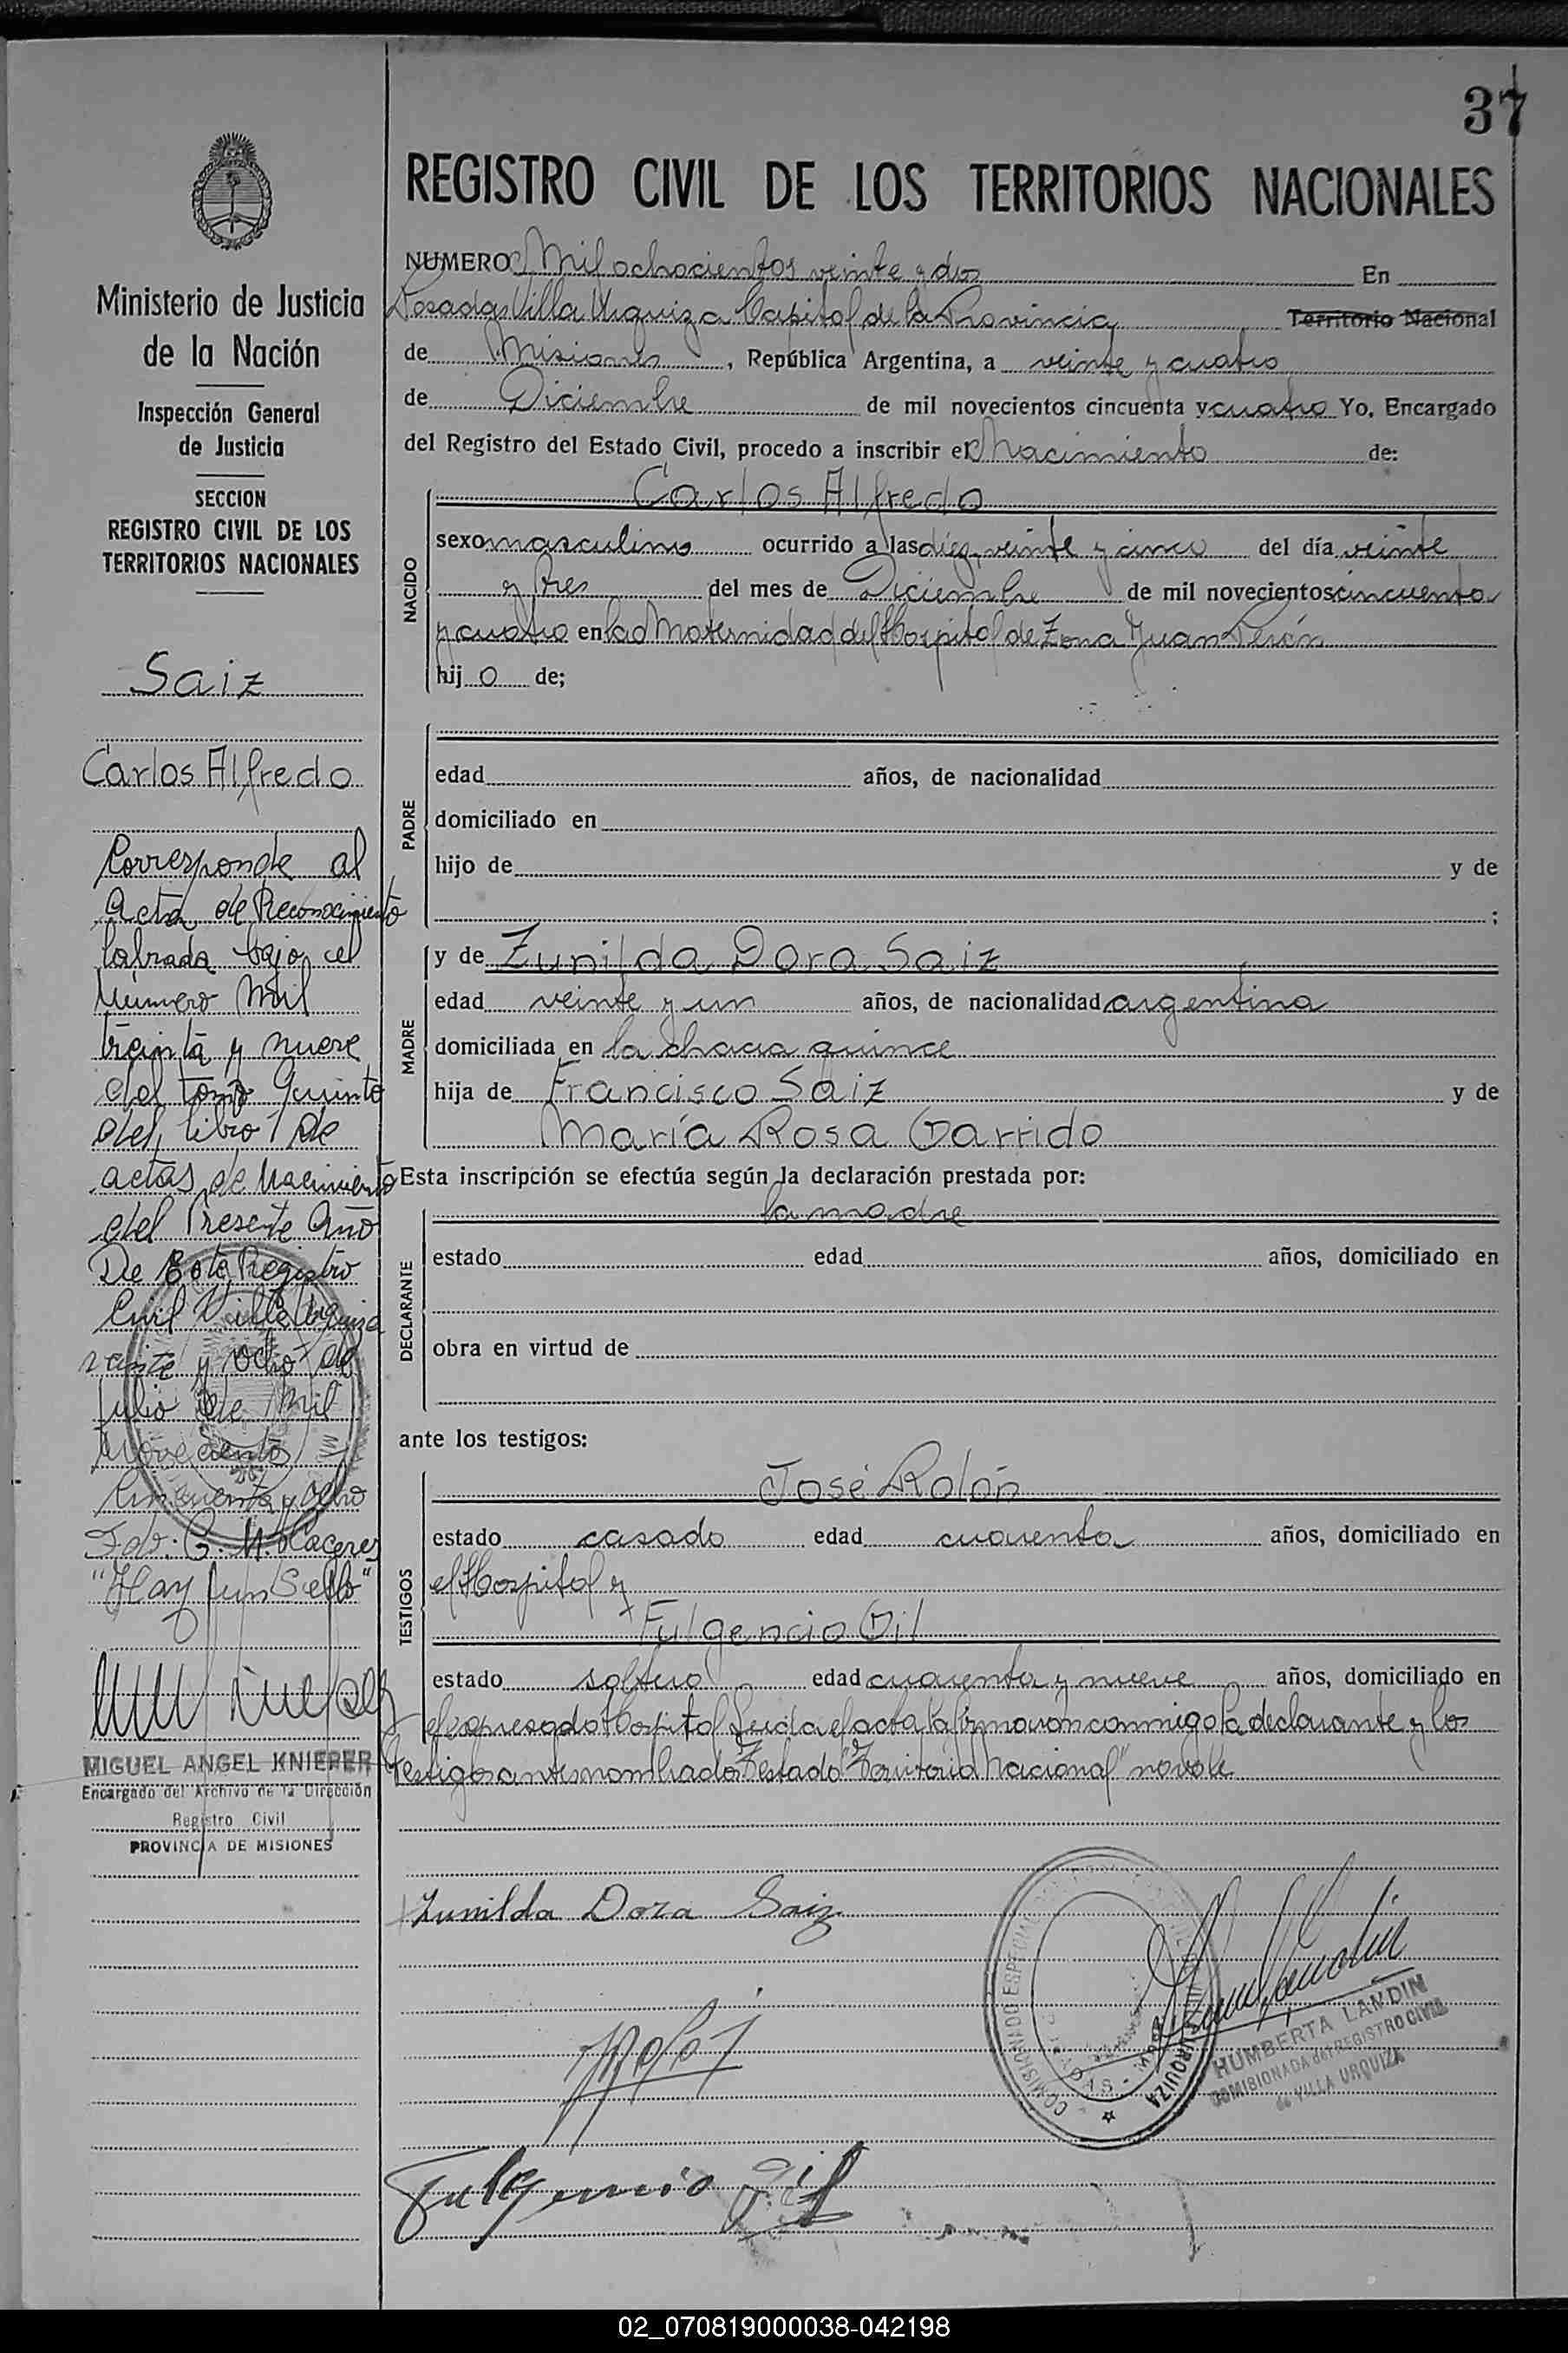 37
REGISTRO CIVIL DE LOS TERRITORIOS NACIONALES
NUMERO Mil ochocientos veinte y dos En
Posadas Villa Urquiza Capital de la Provincia Territorio Nacional
de Misiones, República Argentina, a veinte y cuatro
de Diciembre de mil novecientos cincuenta y cuatro Yo, Encargado
del Registro del Estado Civil, procedo a inscribir el Nacimiento de:
NACIDO
Carlos Alfredo
sexo masculino ocurrido a las diez, veinte y cinco del día veinte
y tres del mes de Diciembre de mil novecientos cincuenta
y cuatro en la Maternidad del Hospital de Zona Juan Perón
hijo de;
PADRE
edad años, de nacionalidad
domiciliado en
hijo de y de
;
MADRE
y de Zunilda Dora Saiz
edad veinte y un años, de nacionalidad argentina
domiciliada en la chacra quince
hija de Francisco Saiz y de
María Rosa Garrido
Esta inscripción se efectúa según la declaración prestada por:
DECLARANTE
la madre
estado edad años, domiciliado en
obra en virtud de
ante los testigos:
TESTIGOS
José Rolón
estado casado edad cuarenta años, domiciliado en
el Hospital y
Fulgencio Gil
estado soltero edad cuarenta y nueve años, domiciliado en
el expresado Hospital Leída el acta la firmaron conmigo la declarante y los
testigos antes nombrados Testado "Territorio Nacional" no vale
Zunilda Dora Saiz
Fulgencio Gil
COMISIONADO ESPECIAL
URQUIZA
HUMBERTA LANDIN
COMISIONADA del REGISTRO CIVIL
de VILLA URQUIZA
Ministerio de Justicia
de la Nación
Inspección General
de Justicia
SECCION
REGISTRO CIVIL DE LOS
TERRITORIOS NACIONALES
Saiz
Carlos Alfredo
Corresponde al
Acta de Reconocimiento
labrada bajo el
Número Mil
treinta y nueve
del tomo Quinto
del libro 1 de
actas de Nacimiento
del Presente Año
De Este Registro
Civil Villa Urquiza
veinte y ocho de
Julio de Mil
Novecientos
Cincuenta y Ocho
Fdo: G. M. Caceres
"Hay un Sello"
MIGUEL ANGEL KNIEPER
Encargado del Archivo de la Dirección
Registro Civil
PROVINCIA DE MISIONES
02_070819000038-042198